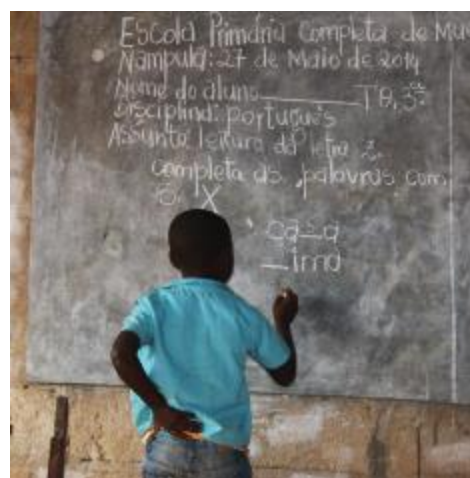 Escola Primária Completa de Mu
Nampula: 27 de Maio de 2014
Nome do aluno________ Tª, 3ª
Disciplina: português
Assunto: leitura da letra z.
completa as palavras com
X
ca_a
_ima